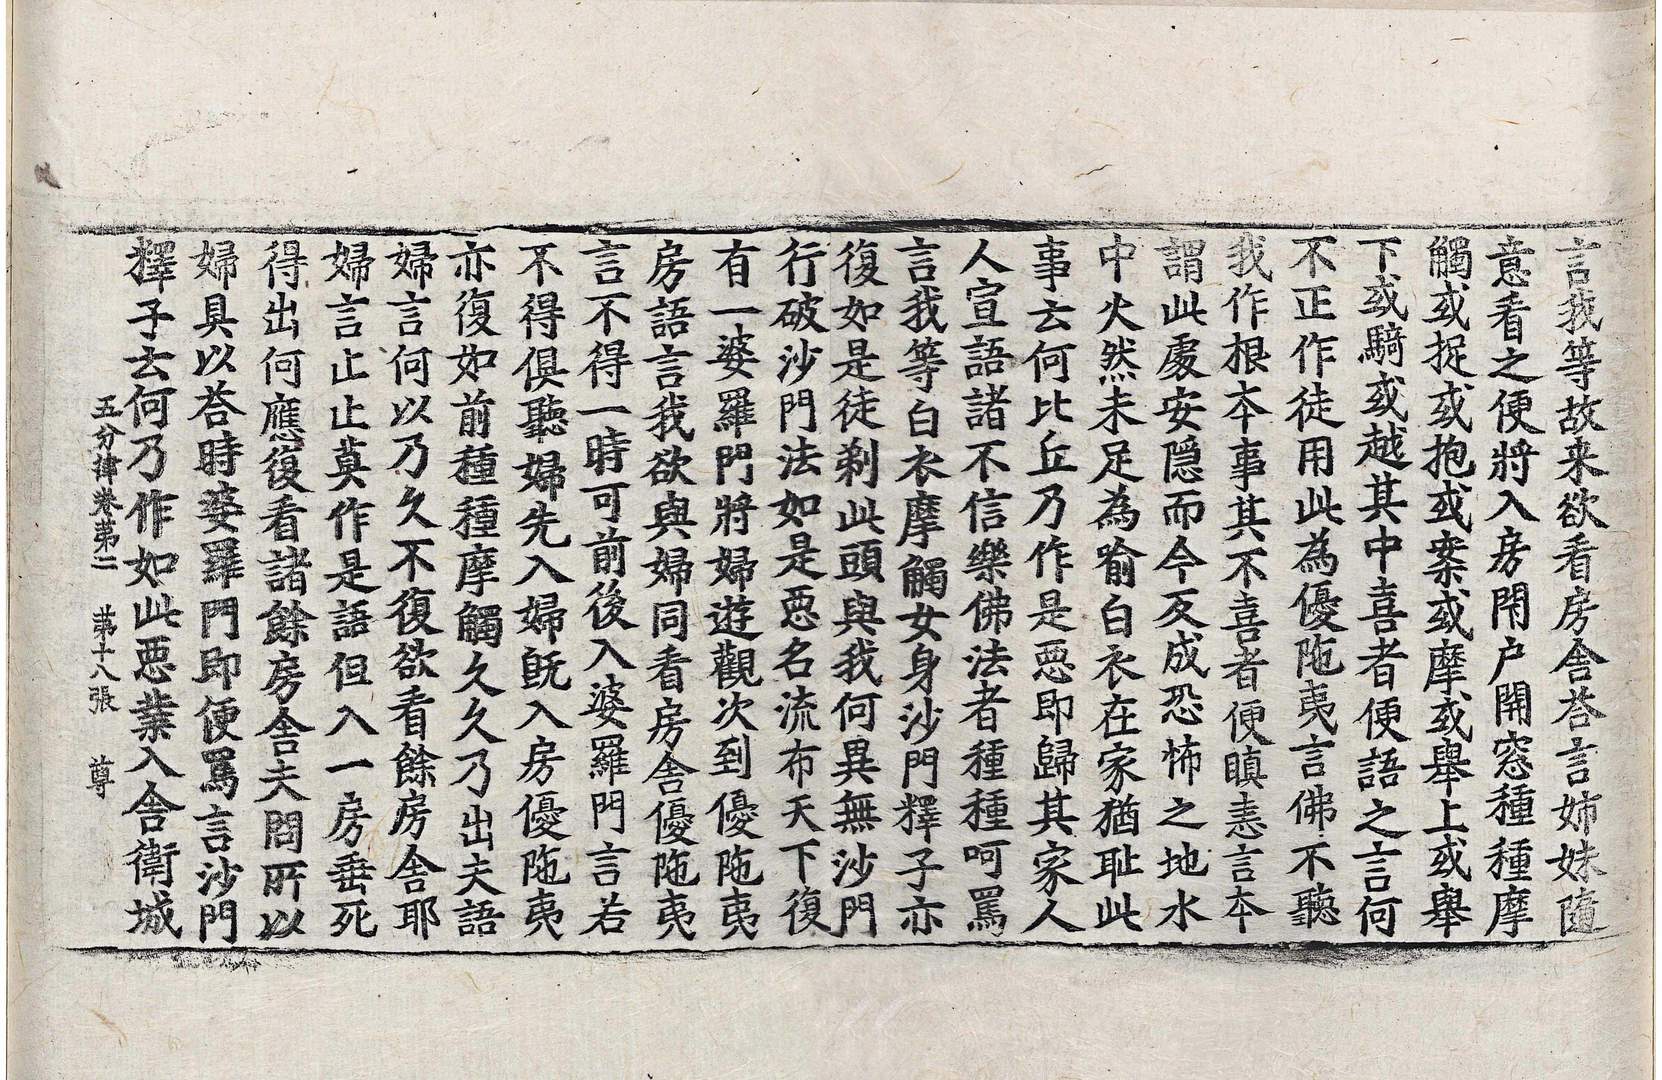 言我等故来欲看房舍荅言姉妹隨
意看之便將入房閇户開窓種種摩
觸或捉或抱或案或摩或舉上或舉
下或騎或越其中喜者便語之言何
不正作徒用此為優陁夷言佛不聽
我作根夲事其不喜者便瞋恚言夲
謂此處安隠而今反成恐怖之地水
中火然未足為喻白衣在家猶耻此
事云何比丘乃作是惡即歸其家人
人宣語諸不信樂佛法者種種呵罵
言我等白衣摩觸女身沙門釋子亦
復如是徒剃此頭與我何異無沙門
行破沙門法如是惡名流布天下復
有一婆羅門將婦遊觀次到優陁夷
房語言我欲與婦同看房舍優陁夷
言不得一時可前後入婆羅門言若
不得俱聽婦先入婦旣入房優陁夷
亦復如前種種摩觸久久乃出夫語
婦言何以乃久不復欲看餘房舍耶
婦言止止莫作是語但入一房垂死
得出何應復看諸餘房舍夫問所以
婦具以荅時婆羅門即便罵言沙門
釋子云何乃作如此惡業入舍衛城
五分律卷苐二 苐十八張 尊